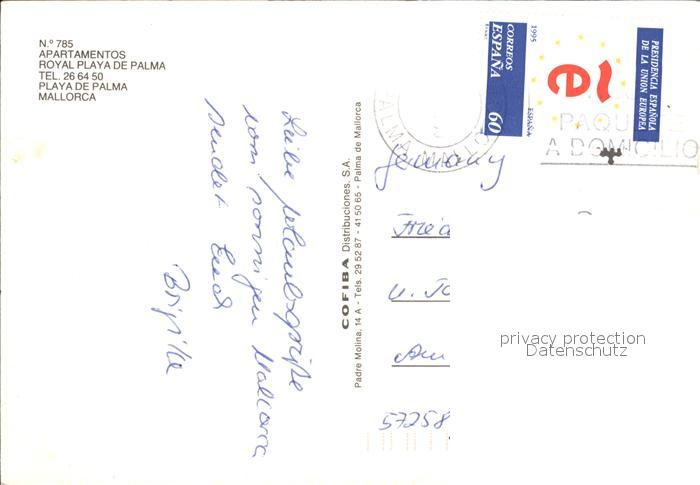 N.º 785
APARTAMENTOS
ROYAL PLAYA DE PALMA
TEL. 26 64 50
PLAYA DE PALMA
MALLORCA
Liebe Urlaubsgrüße
vom sonnigen Mallorca
sendet Euch
Brigitte
COFIBA Distribuciones, S.A.
Padre Molina, 14 A - Tels. 29 52 87 - 41 50 65 - Palma de Mallorca
1995
CORREOS
ESPAÑA
60
ESPAÑA
ẽ
PRESIDENCIA ESPAÑOLA
DE LA UNION EUROPEA
PALMA MALLO
PAQUETE
A DOMICILIO
Germany
u.
Am
57258
privacy protection
Datenschutz